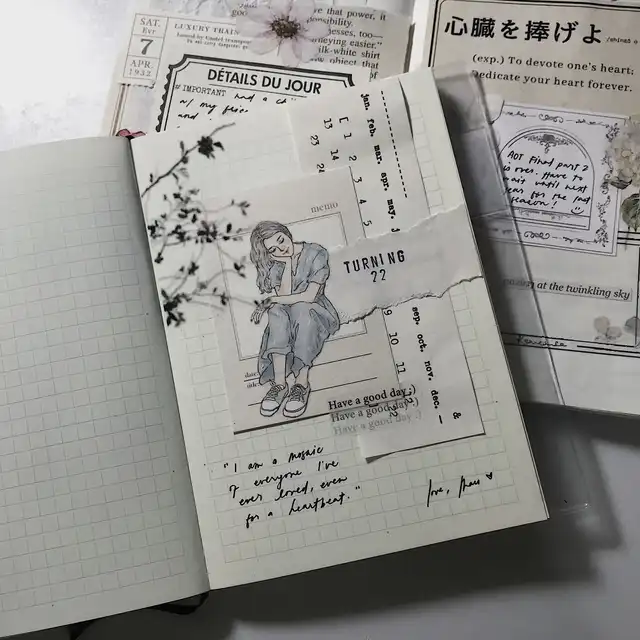 SAT.
7
APR.
1932
LUXURY TRAIN
DÉTAILS DU JOUR
#IMPORTANT had a
w/ my
and
that power, it
sponsibility.
lesses, too—
neying easier."
silk-white shirt
object that
心臓を捧げよ
(exp.) To devote one's heart;
Dedicate your heart forever.
AOT Final part 2
is over. Have to
wait until next
year for the last
season!
at the twinkling sky
jan. feb. mar. apr. may.
1 2 3 4 5
13 14
23
memo
TURNING
22
9 10 11
sep. oct. nov. dec.
&
date
title
Have a good day :)
Have a good day :)
Have a good day :)
"I am a mosaic
of everyone I've
ever loved, even
for a heartbeat."
love,